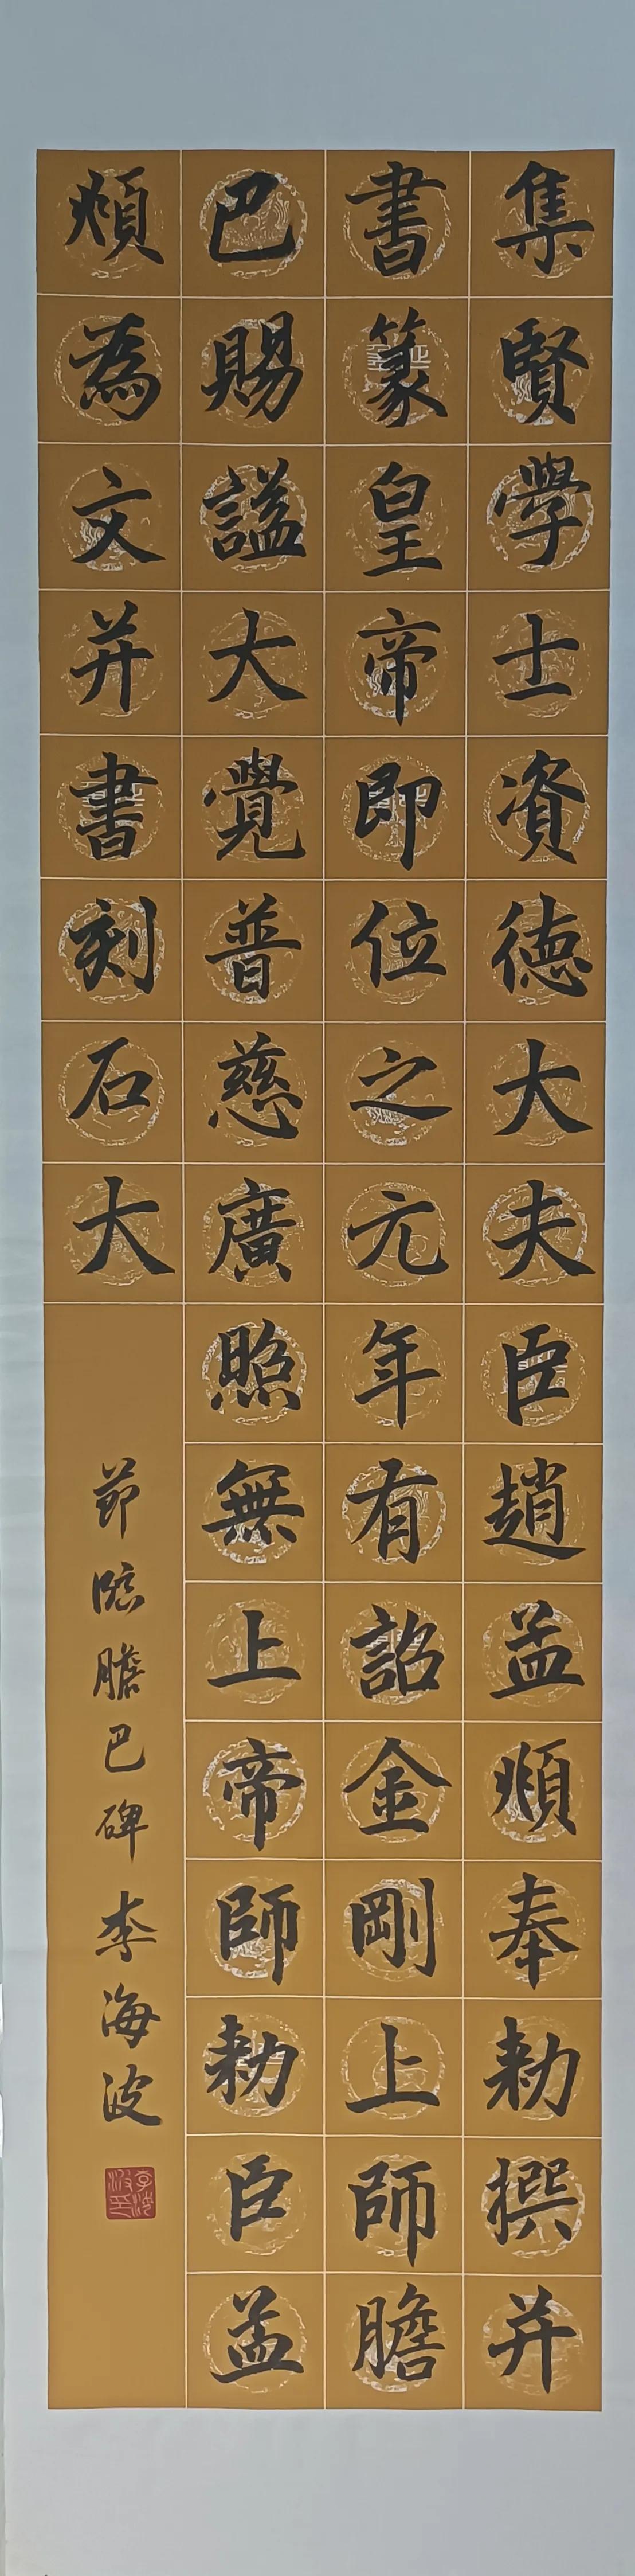 集賢學士資德大夫臣趙孟頫奉勅撰并
書篆皇帝即位之元年有詔金剛上師膽
巴賜謚大覺普慈廣照無上帝師勅臣孟
頫為文并書刻石大
節臨膽巴碑 李海波